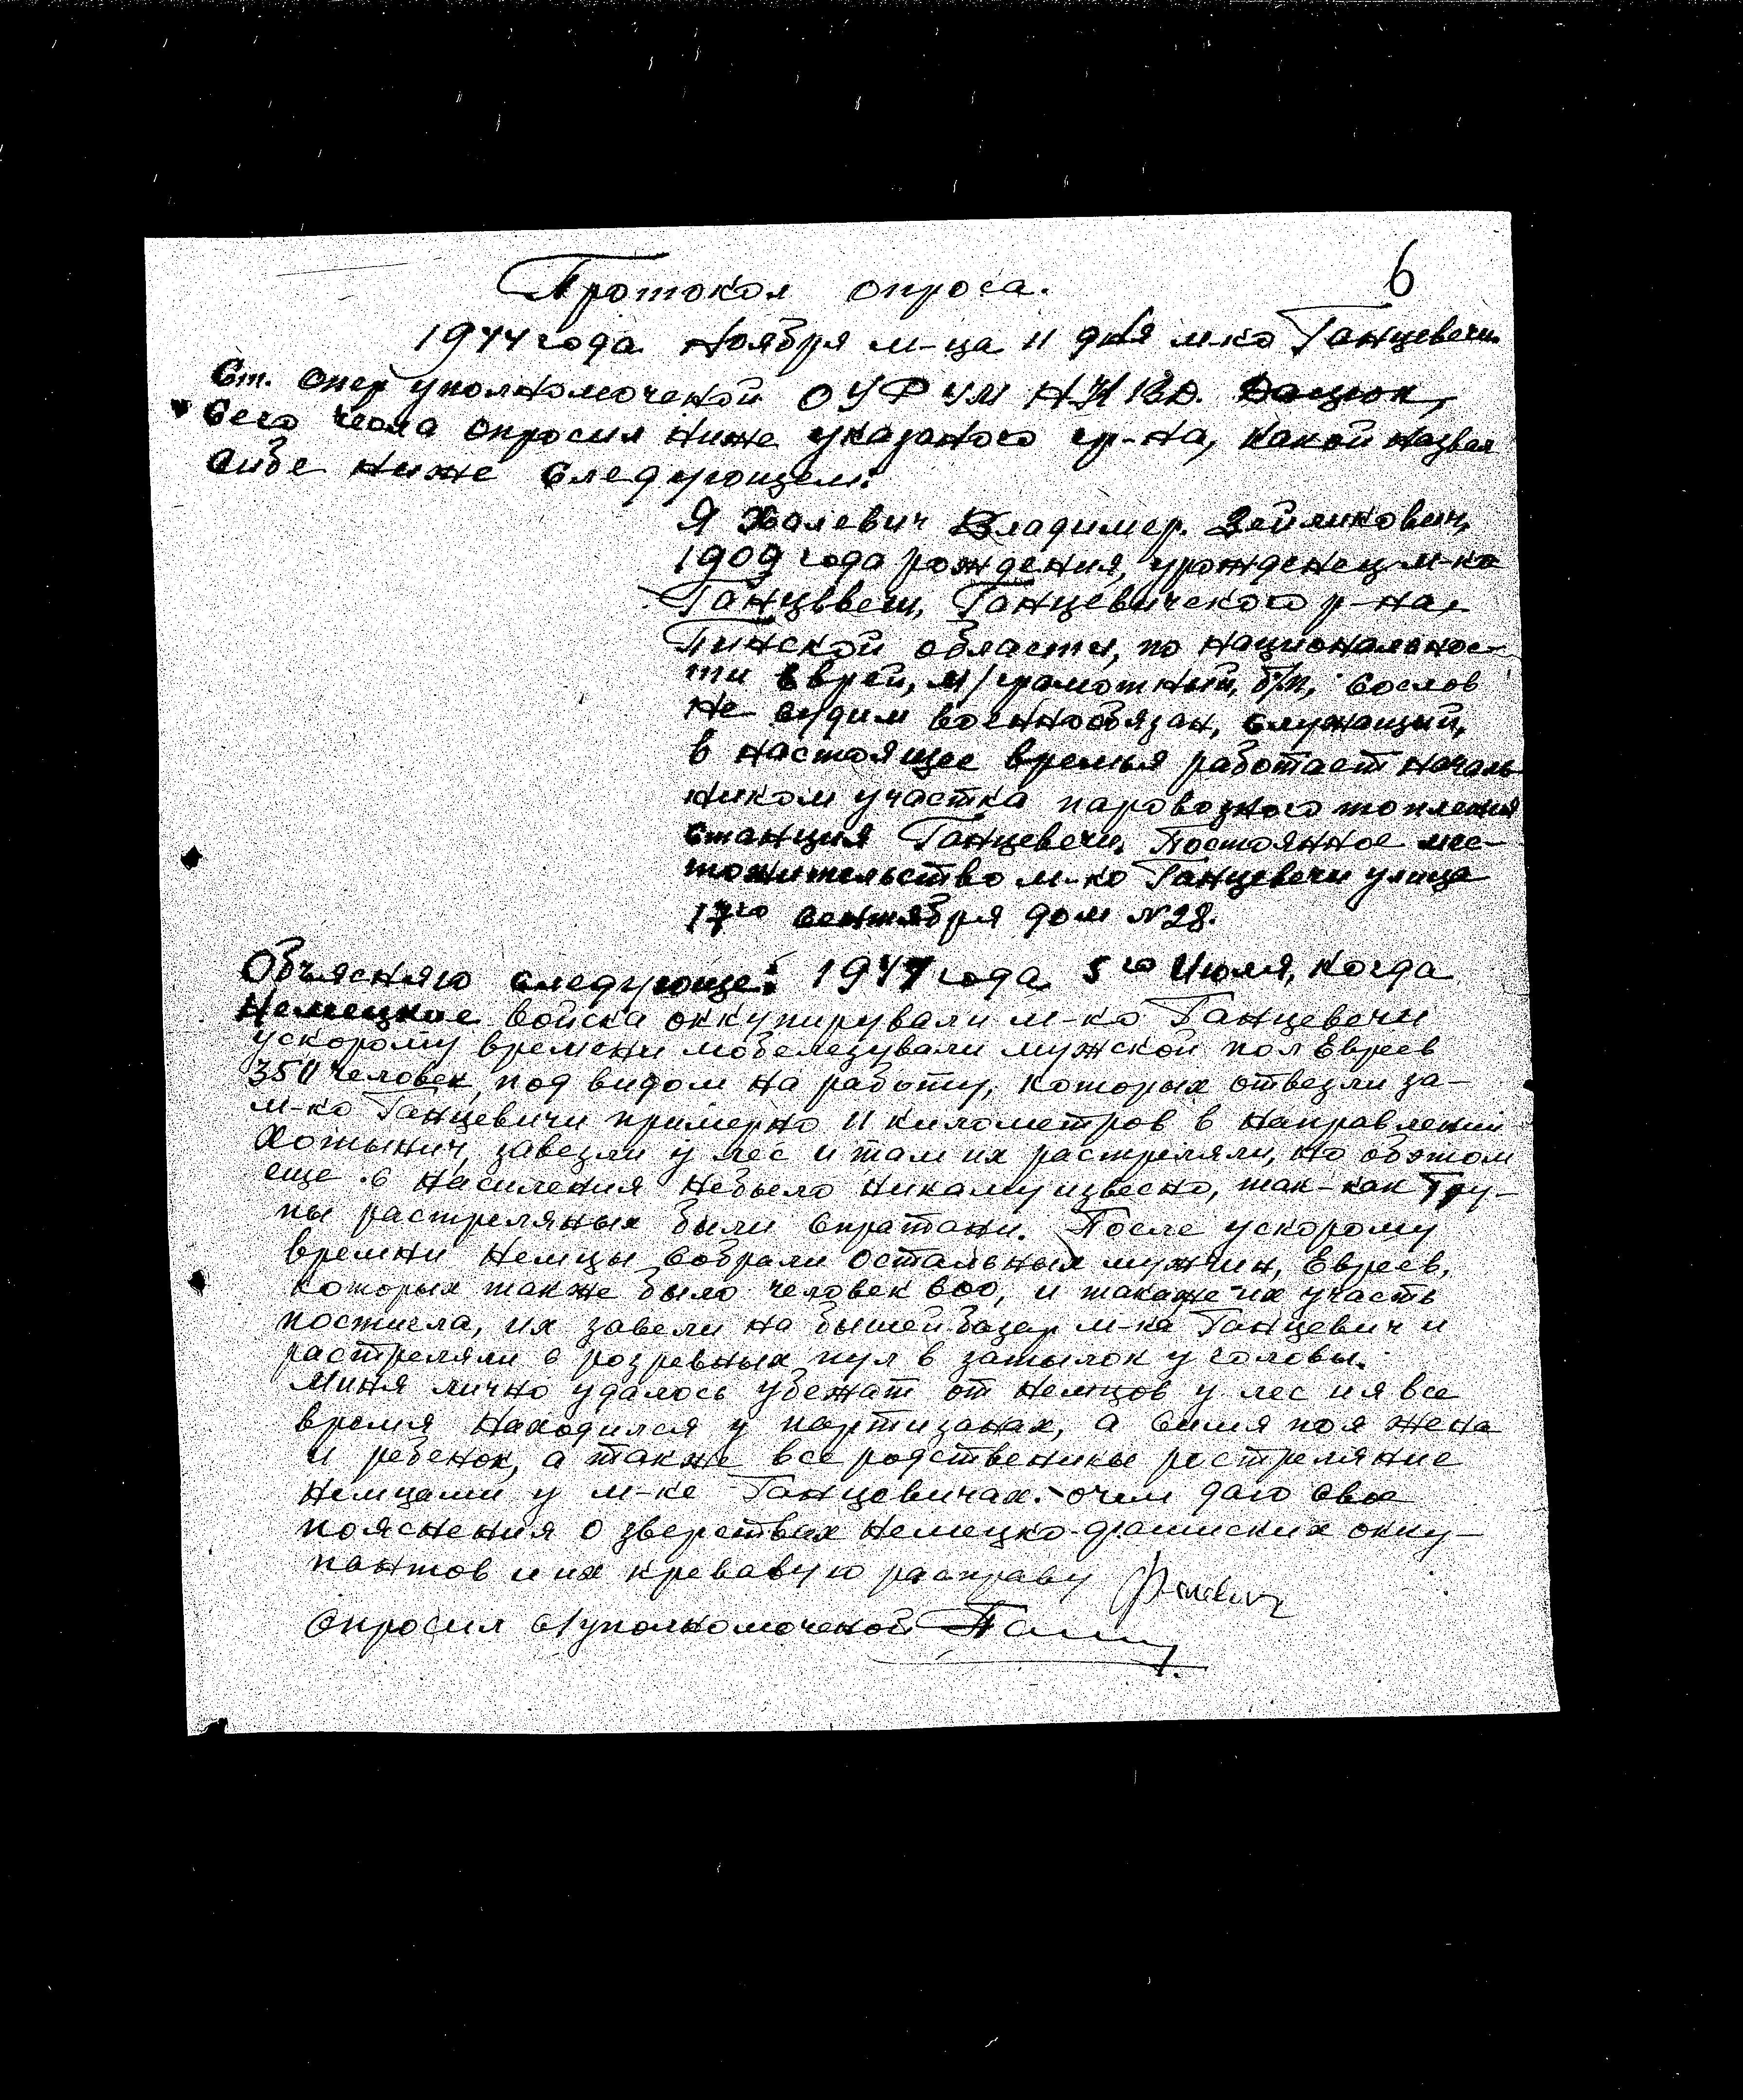 6
Протокол опроса.
1944 года Ноября м-ца 11 дня м-ко Ганцевечи
Ст. Опер уполномоченой ОУР УМ НКВД. Дацюк,
Сего числа опросил ниже указаного гр-на, какой назвал
сибе ниже следующем:
Я Халевич Владимер. Зейликович,
1909 года рождения, урожденец м-ка
Ганцввеш, Ганцевичского р-на,
Пинской области, по национальнос-
ти Еврей, м/грамотный, б/п, сослов
не судим военнообязан, служащий,
в настоящее времья работает началь
ником участка паровозного топления
станция Ганцевечи, Постоянное мес-
тожительство м-ко Ганцевечи улица
17го сентября дом №28.
Объясняю следующе: 1941 года 5го Июля, когда
Немецкие войска оккупирували м-ко Ганцевечи
ускорому времени мобелезували мужской пол Евреев
350 человек, под видом на работу, которых отвезли за-
м-ко Ганцевичи примерно 11 километров в направлении
Хотынич, завезли у лес и там их растреляли, но обэтом
еще с насиления небыло никаму извесно, так-как Тру-
пы растреляных были спратани. После ускорому
времни Немцы собрали остальных мужчин, Евреев,
которых также было человек 600, и такаже их участь
постигла, их завели на бышей базар м-ка Ганцевич и
растреляли с розревных пул в затылок у головы.
Миня лично удалось убежат от немцов у лес и я все
время находился у партизанах, а симя поя жена
и ребенок, а также все родственики ростреляние
немцами у м-ке Ганцевичах. очем даю свое
пояснения о зверствах немецко-фашиских окку-
пантов и их кревавую расправу
Опросил с/уполномоченой